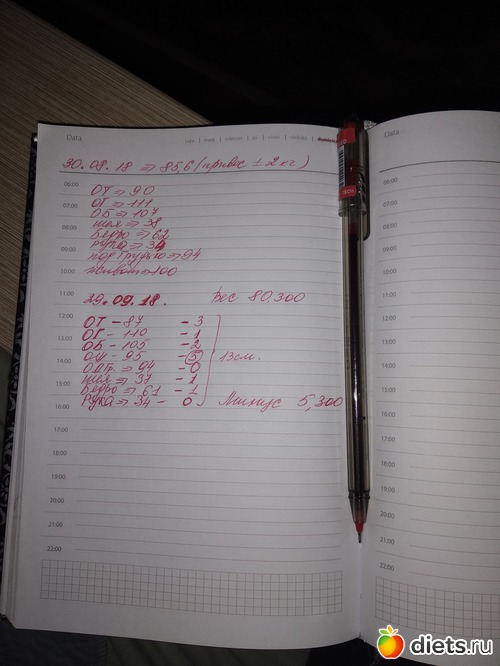 Data
30.08.18 ⇒ 85,6 (привес ± 2 кг)
06:00
ОТ ⇒ 90
07:00
ОГ ⇒ 111
ОБ ⇒ 107
08:00
шея ⇒ 38
бедро ⇒ 62
09:00
рука ⇒ 34
под грудью ⇒ 94
10:00
живот ⇒ 100
11:00
29.09.18. Вес 80,300
12:00
ОТ - 87 - 3
13:00
ОГ - 110 - 1
ОБ - 105 - 2
14:00
ОЖ - 95 - 5 13 см.
ОПГ - 94 - 0
15:00
шея ⇒ 37 - 1
бедро ⇒ 61 - 1
16:00
Рука ⇒ 34 - 0 Минус 5,300
17:00
18:00
19:00
20:00
21:00
22:00
Data
06:00
07:00
08:00
09:00
10:00
11:00
12:00
13:00
14:00
15:00
16:00
17:00
18:00
19:00
20:00
21:00
22:00
diets.ru